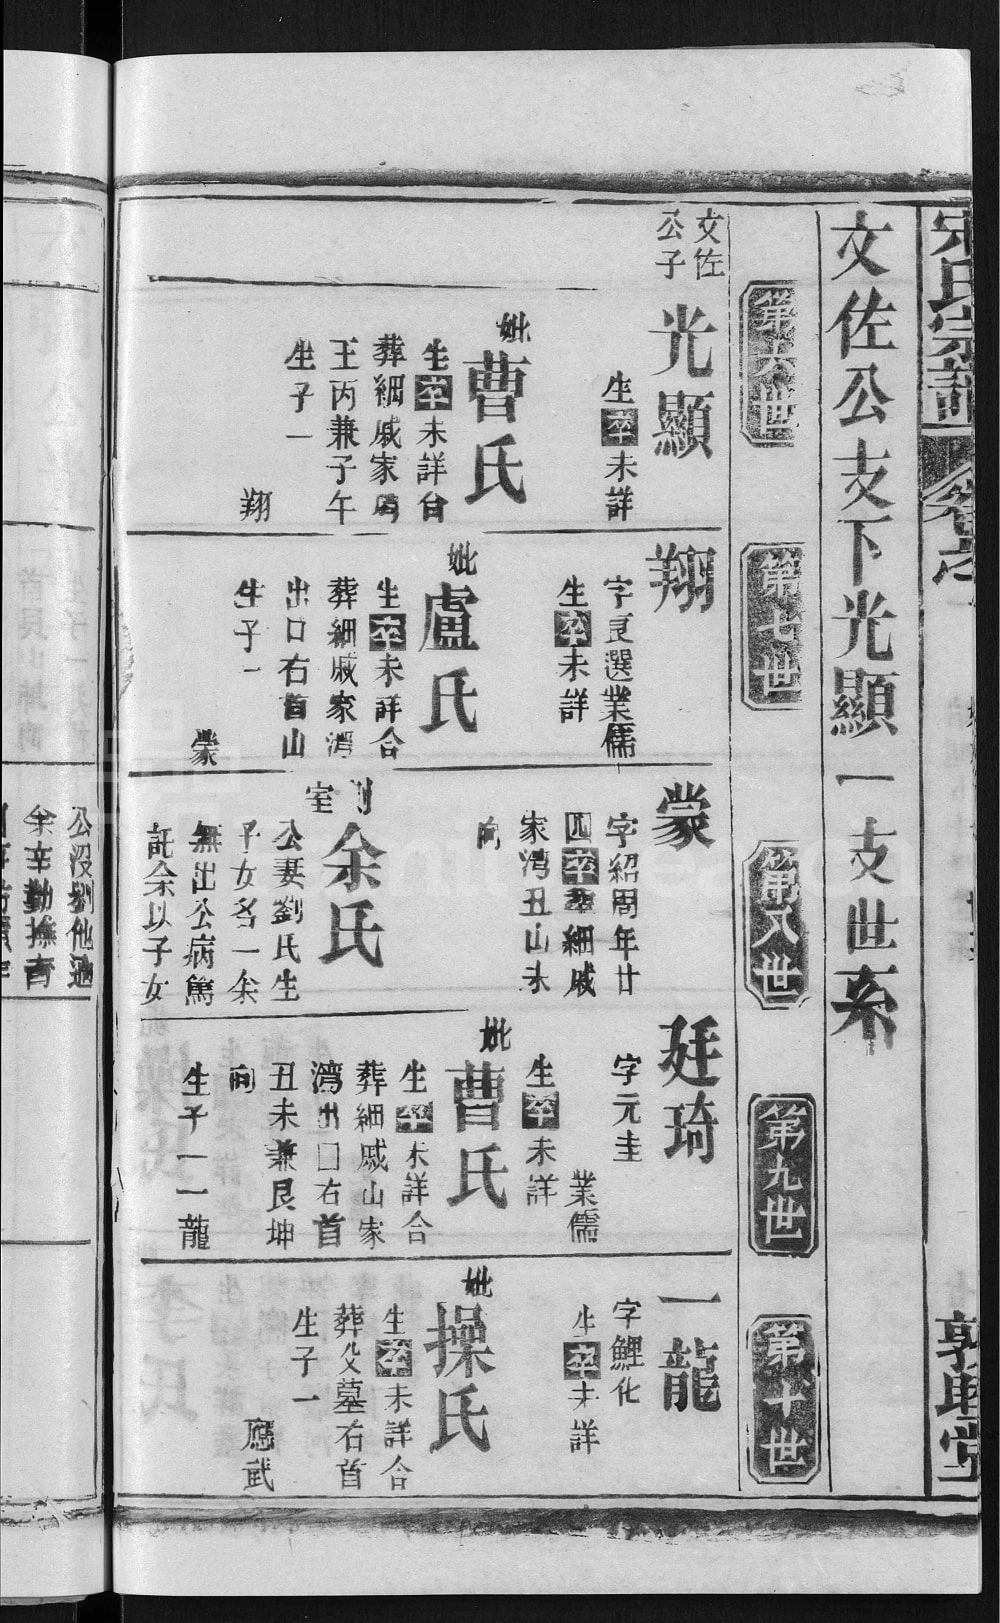 宋氏宗譜
敦睦堂
文佐公支下光顯一支世系
第六世
第七世
第八世
第九世
第十世
文佐
公子
光顯
生卒未詳
妣
曹氏
生卒未詳合
葬細戚家灣
壬丙兼子午
生子一
翔
翔
字良選業儒
生卒未詳
妣
盧氏
生卒未詳合
葬細戚家灣
出口右首山
生子一
蒙
蒙
字紹周年廿
四卒葬細戚
家湾丑山未
向
側
室
余氏
公妻劉氏生
子女各一余
無出公病篤
託余以子女
廷琦
字元圭
業儒
生卒未詳
妣
曹氏
生卒未詳合
葬細戚山家
湾出口右首
丑未兼艮坤
向
生子一一龍
一龍
字鯉化
生卒未詳
妣
操氏
生卒未詳合
葬父墓右首
生子一
應武
公沒劉他適
余辛勤撫育